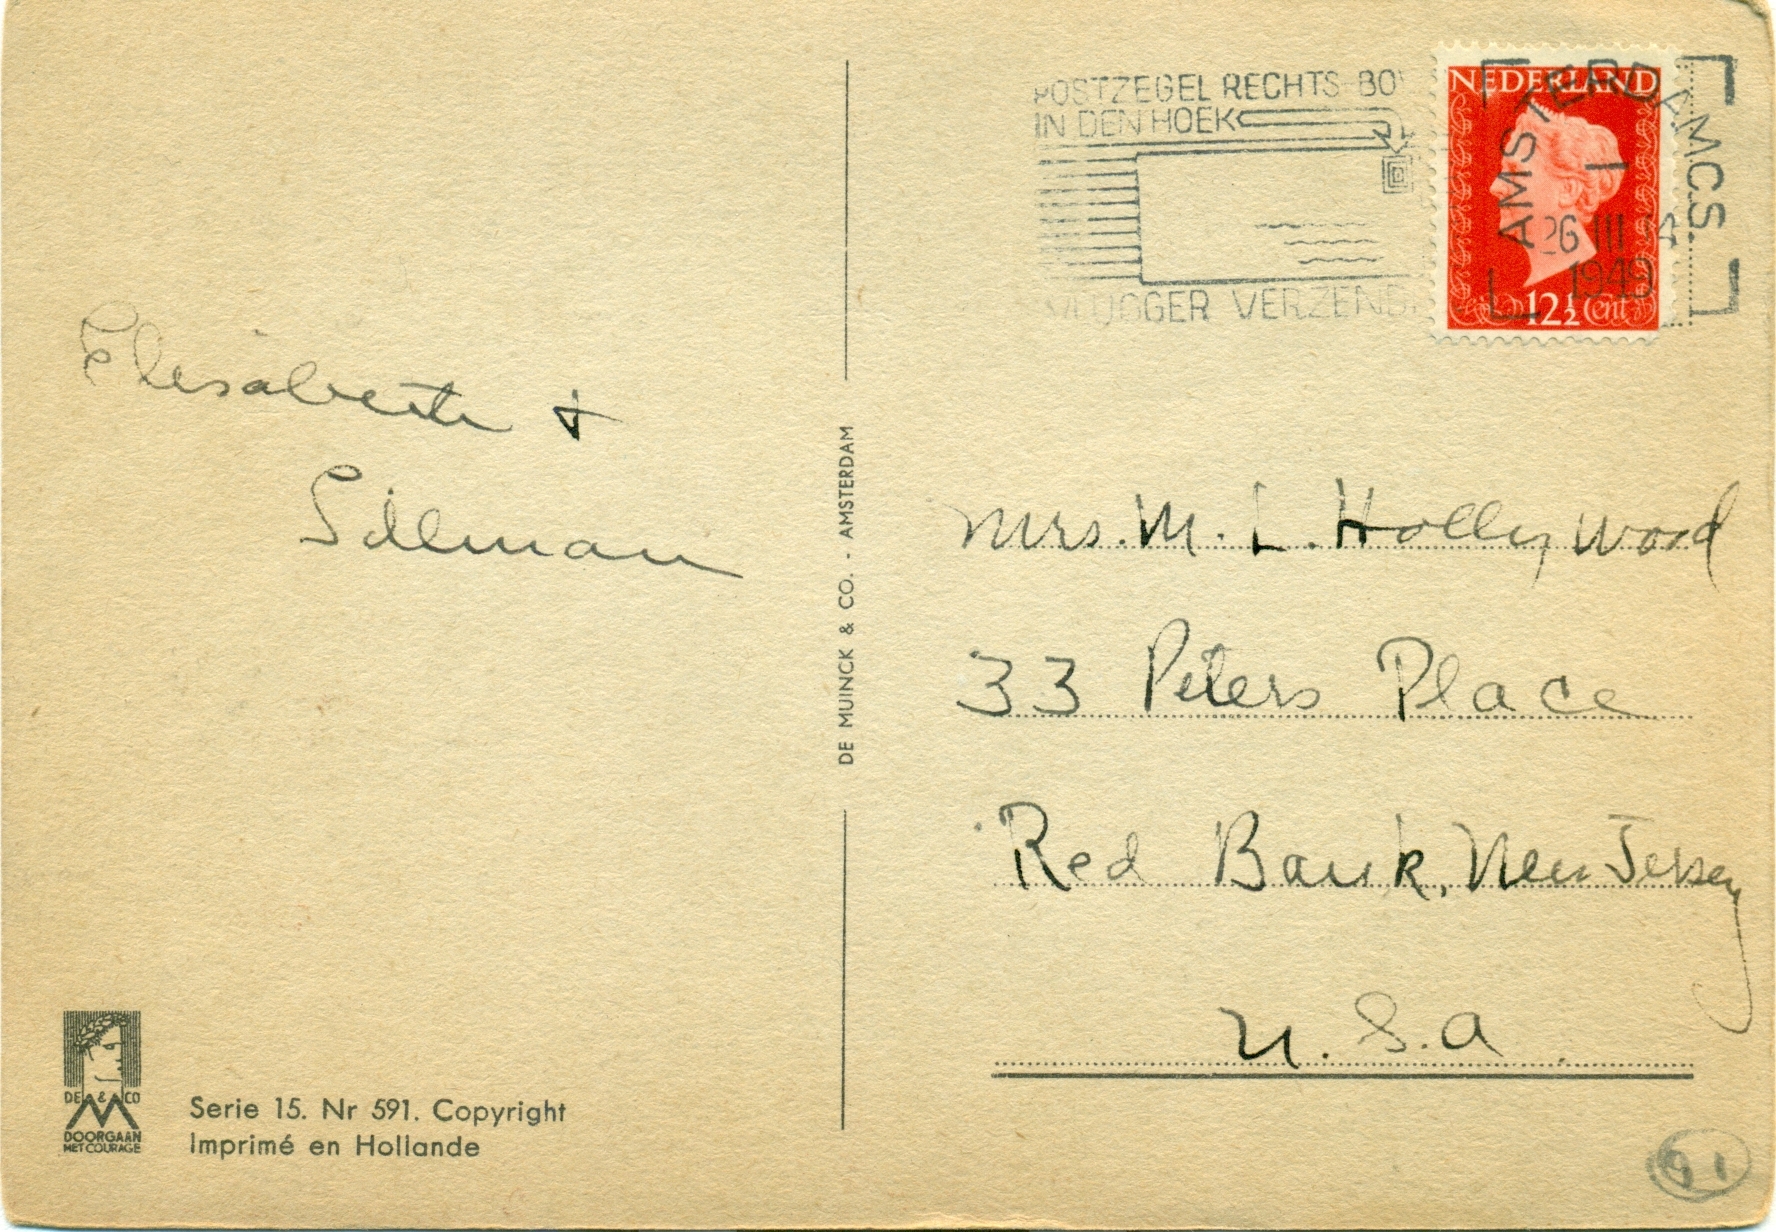 POSTZEGEL RECHTS BO
IN DEN HOEK
VLUGGER VERZEND
NEDERLAND
12½ Cent
AMSTERDAM CS.
1
26 III
1949
Elisabeth +
Mrs. M. L. Hollywood
33 Peters Place
Red Bank, New Jersey
U.S.A
DE MUINCK & CO. - AMSTERDAM
DE & CO
M
DOORGAAN
MET COURAGE
Serie 15. Nr 591. Copyright
Imprimé en Hollande
91